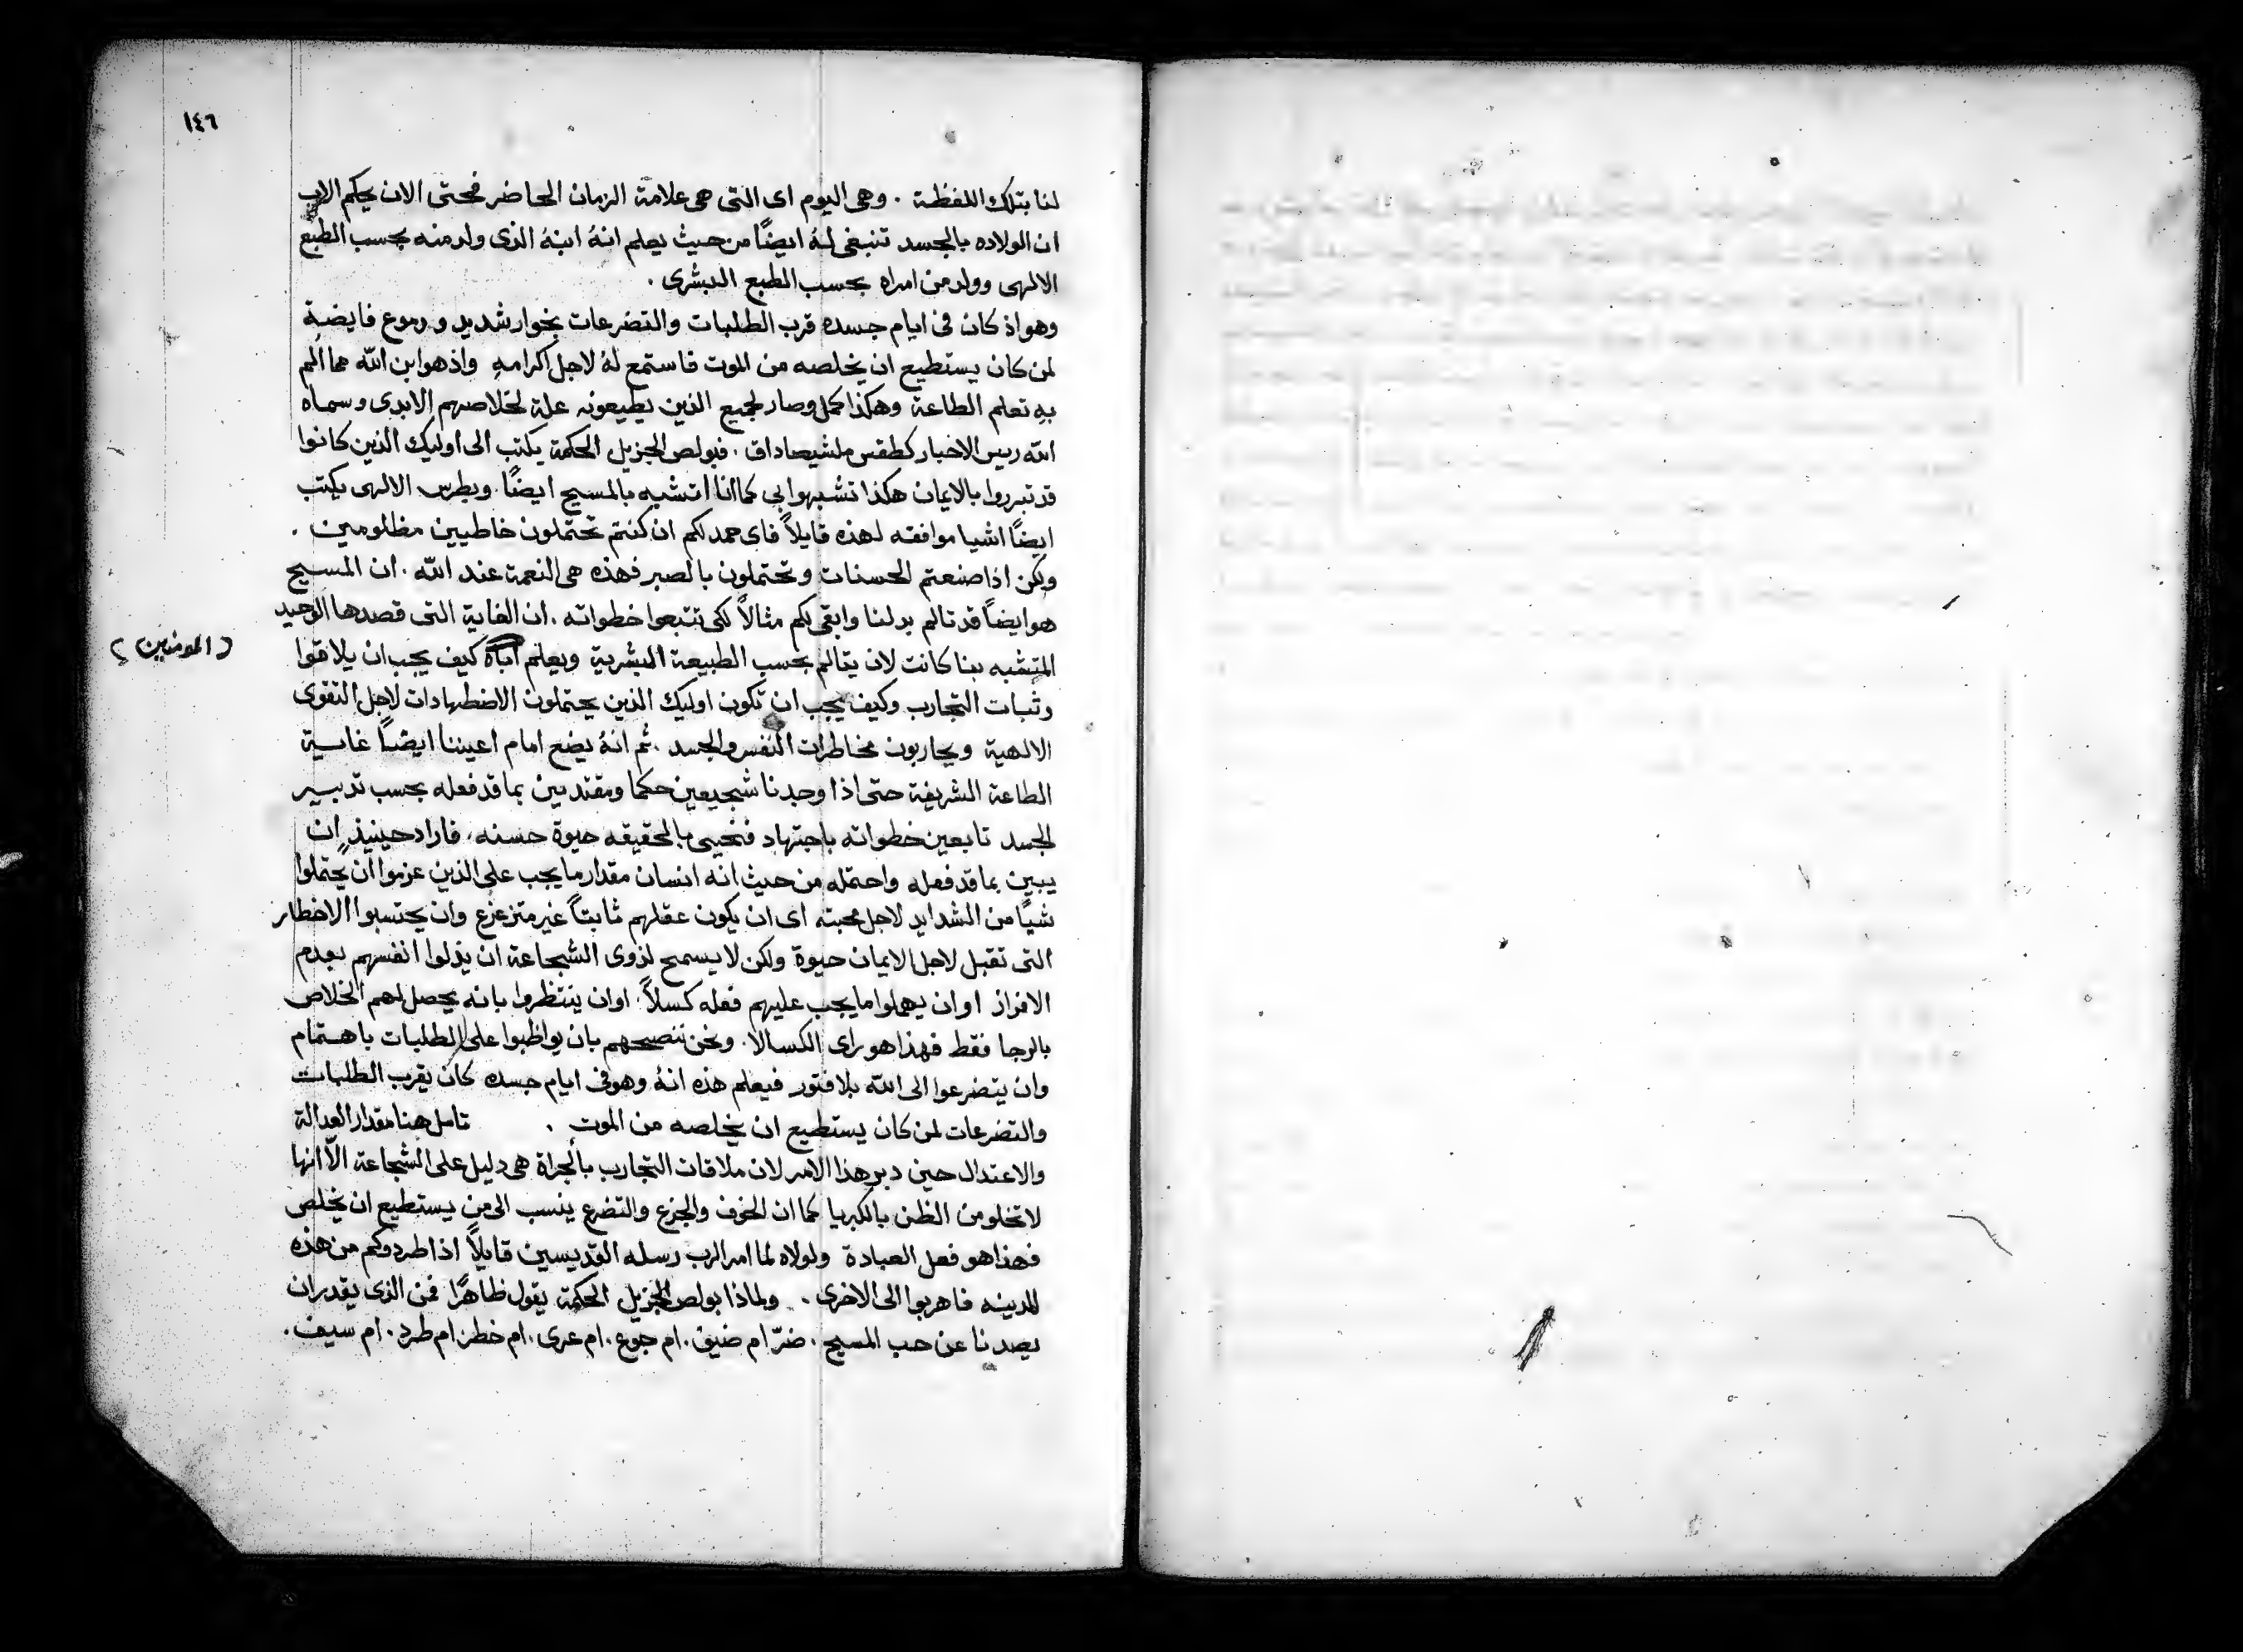 ١٤٦
لنا بتلك اللفظة . وهى اليوم اى التى هى علامة الزمان الحاضر فحتى الان يحكم الاب
ان الولاده بالجسد تنبغى لهُ ايضًا من حيث يعلم انهُ ابنهُ الذى ولد منه بحسب الطبع
الالهى وولد من امراه بحسب الطبع البشرى .
وهو اذ كان فى ايام جسده قرب الطلبات والتضرعات بخوار شديد ودموع فايضة
لمن كان يستطيع ان يخلصه من الموت فاستمع لهُ لاجل اكرامهِ واذ هو ابن الله مما الم
بهِ تعلم الطاعة وهكذا كمل وصار لجميع الذين يطيعونه علة لخلاصهم الابدى وسماه
الله ريس الاحبار كطقس ملشيصاداق . فبولص الجزيل الحكمة يكتب الى اوليك الذين كانوا
قد تبرروا بالايمان هكذا تشبهوا بى كما انا اتشبه بالمسيح ايضًا . وبطرس الالهى يكتب
ايضًا اشيا موافقه لهذه قايلاً فاى حمد لكم ان كنتم تحتملون خاطيين مظلومين .
ولكن اذا صنعتم الحسنات وتحتملون بالصبر فهذه هى النعمة عند الله . ان المسيح
هو ايضًا قد تالم بدلنا وابقى لكم مثالاً لكى تتبعوا خطواته . ان الغاية التى قصدها الوحيد
المتشبه بنا كانت لان يتالم بحسب الطبيعة البشرية ويعلم كيف يجب ان يلاقوا
(المومنين)
وثبات التجارب وكيف يجب ان تكون اوليك الذين يحتملون الاضطهادات لاجل التقوى
الالهية ويحاربون مخاطرات النفس والجسد . ثم انهُ يضع امام اعيننا ايضًا غاية
الطاعة الشريفة حتى اذا وجدنا شجيعين حكما ومقتدين بما قد فعله بحسب تدبير
الجسد تابعين خطواته باجتهاد فنحيى بالحقيقه حيوة حسنه . فاراد حينيذٍ ان
يبين بما قد فعله واحتمله من حيث انه انسان مقدار ما يجب على الذين عزموا ان يحتملوا
شيًا من الشدايد لاجل محبته اى ان يكون عقلهم ثابتاً غير متزعزع وان يحتسبوا الاخطار
التى تقبل لاجل الايمان حيوة ولكن لا يسمح لذوى الشجاعة ان يذلوا انفسهم بعدم
الافراز او ان يهملوا ما يجب عليهم فعله كسلاً . او ان ينتظروا بانه يحصل لهم الخلاص
بالرجا فقط فهذا هو راى الكسالا . ونحن ننصحهم بان يواظبوا على الطلبات باهتمام
وان يتضرعوا الى الله بلا فتور فيعلم هذه انهُ وهو فى ايام جسده كان يقرب الطلبات
والتضرعات لمن كان يستطيع ان يخلصه من الموت . تامل هنا مقدار العدالة
والاعتدال حين دبر هذا الامر لان ملاقات التجارب بالجراة هى دليل على الشجاعة الّا انها
لا تخلو من الظن بالكبريا كما ان الخوف والجزع والتضرع ينسب الى من يستطيع ان يخلص
فهذا هو فعل العبادة ولولاه لما امر الرب رسله القديسين قايلاً اذا طردوكم من هذه
المدينه فاهربوا الى الاخرى . ولماذا بولص الجزيل الحكمة يقول ظاهرًا فمن الذى يقدر ان
يصدنا عن حب المسيح . ضرّ ام ضيق . ام جوع . ام عرى . ام خطر ام طرد . ام سيف .